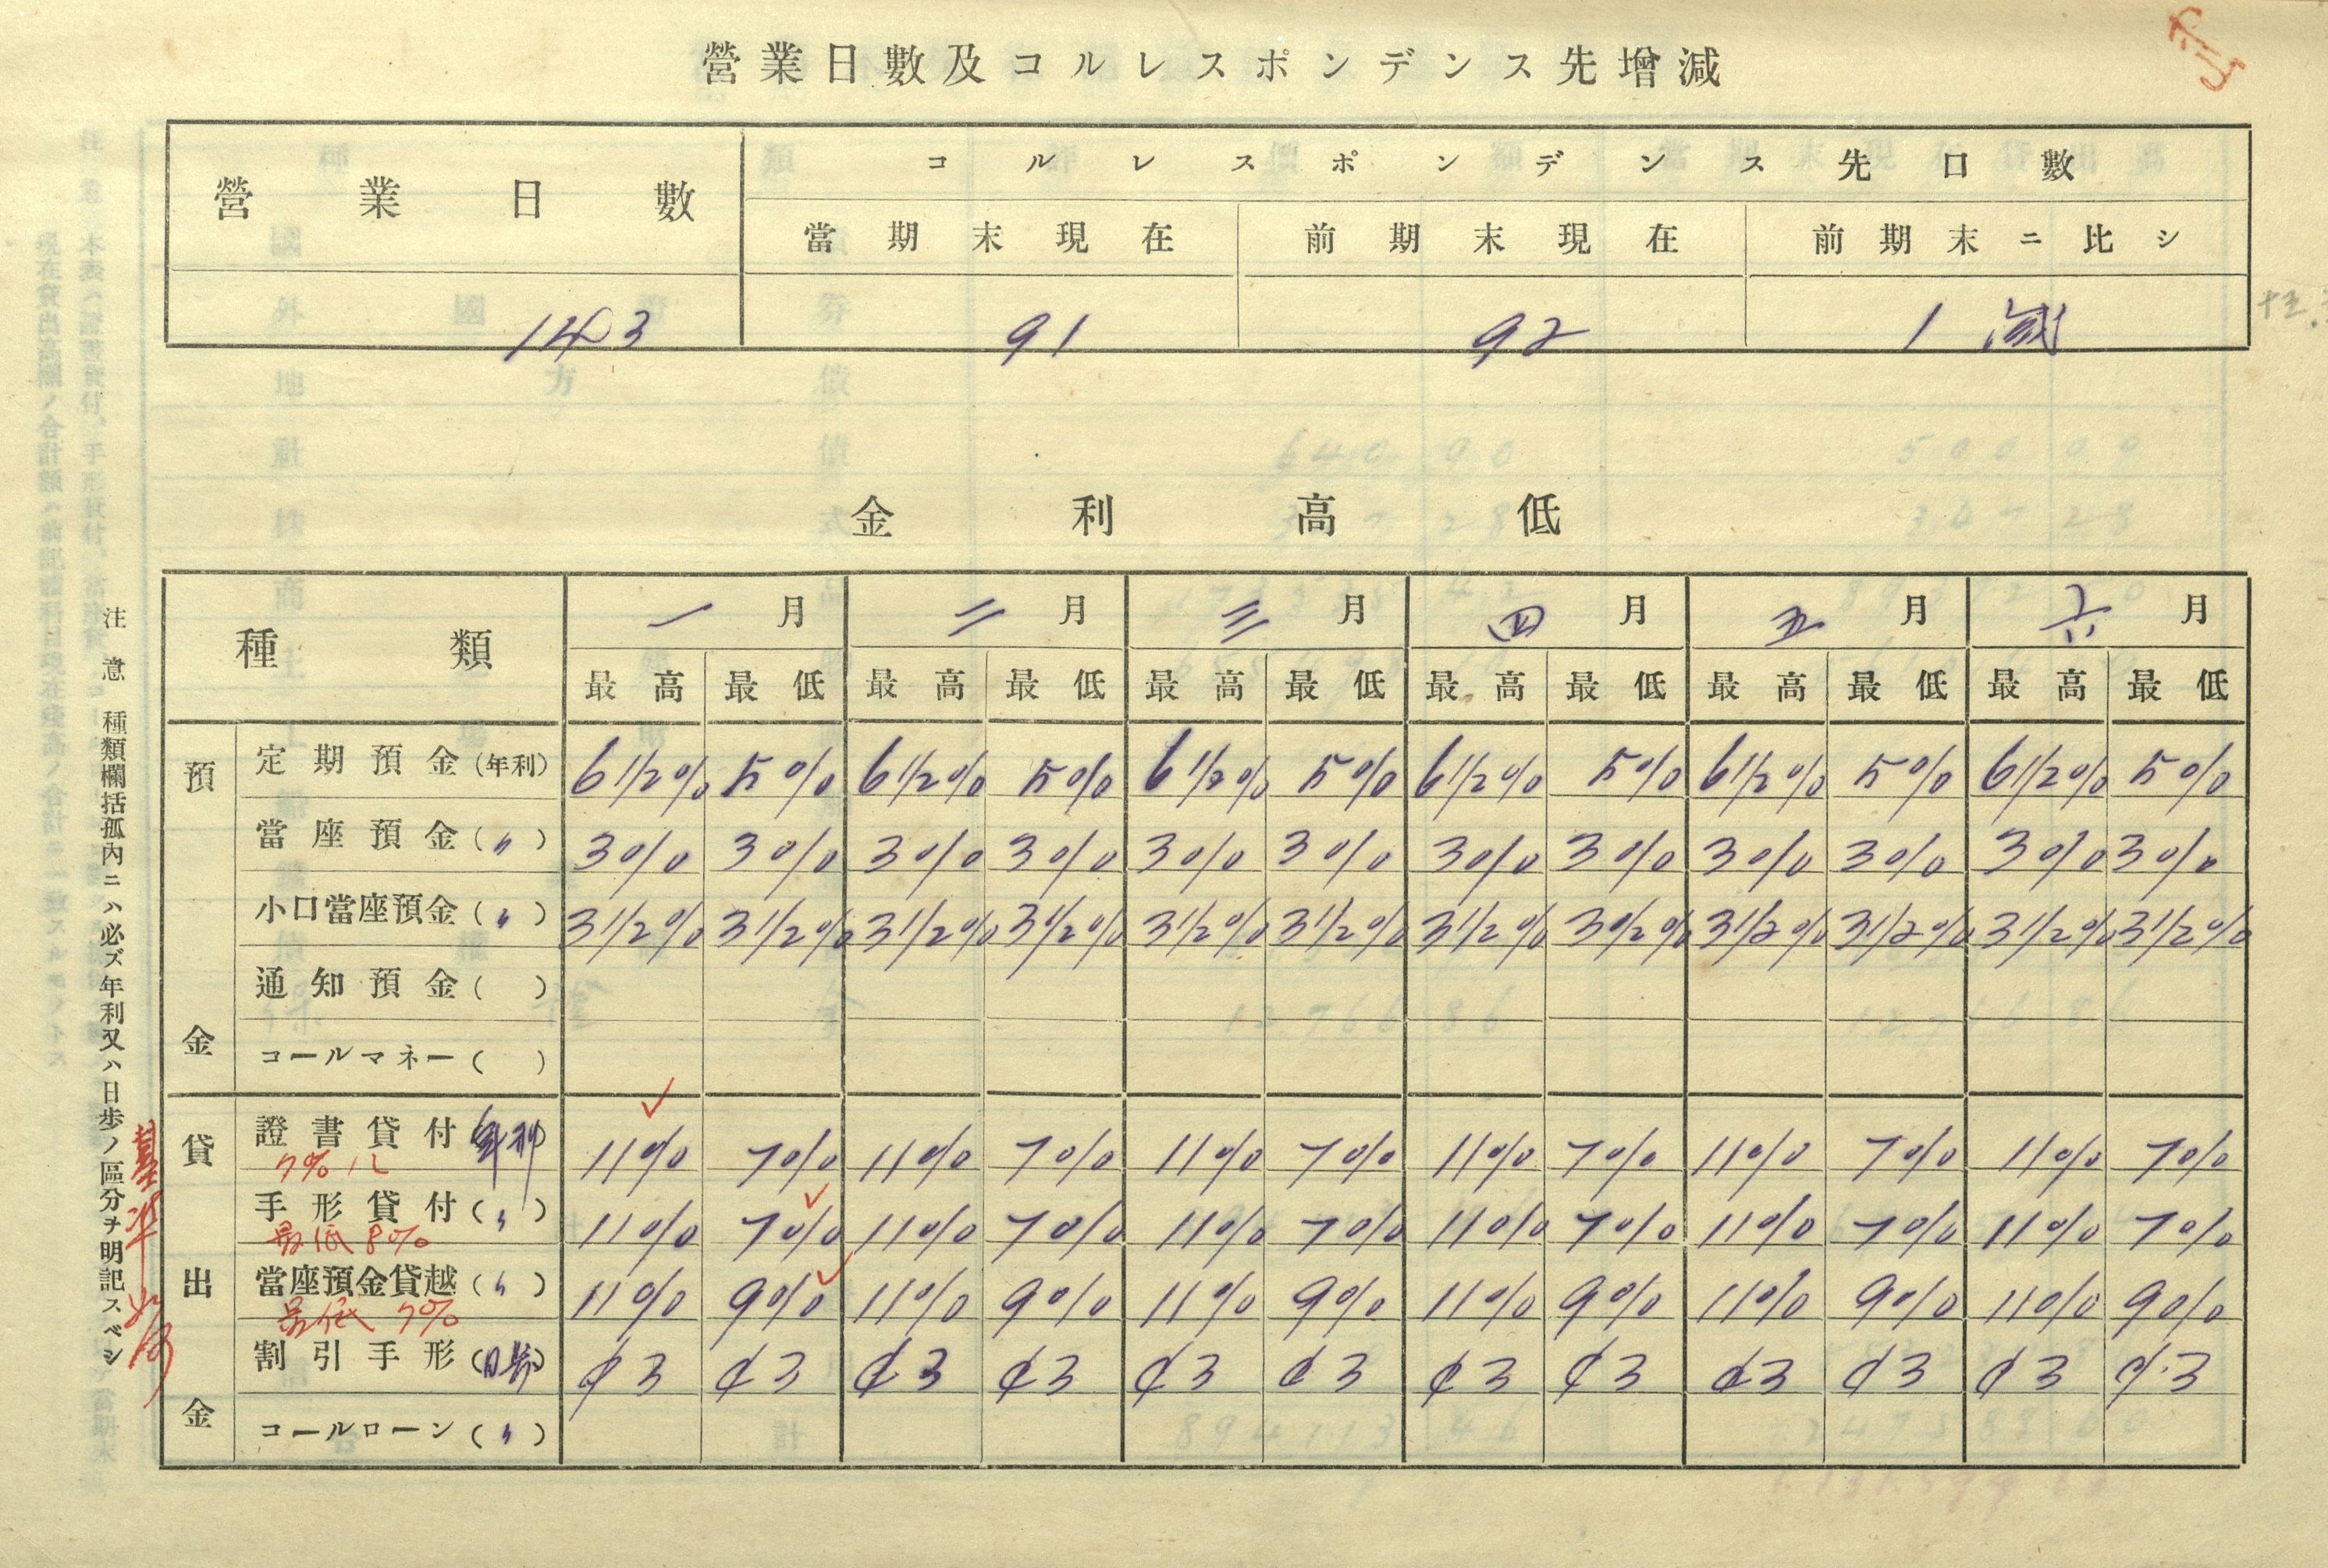 營業日數及コルレスポンデンス先增減
營業日數 コルレスポンデンス先口數
當期末現在 前期末現在 前期末ニ比シ
143 91 92 1 減
金利高低
種類 一月 二月 三月 四月 五月 六月
最高 最低 最高 最低 最高 最低 最高 最低 最高 最低 最高 最低
預金
定期預金(年利) 6 1/2% 5% 6 1/2% 5% 6 1/2% 5% 6 1/2% 5% 6 1/2% 5% 6 1/2% 5%
當座預金(〃) 3% 3% 3% 3% 3% 3% 3% 3% 3% 3% 3% 3%
小口當座預金(〃) 3 1/2% 3 1/2% 3 1/2% 3 1/2% 3 1/2% 3 1/2% 3 1/2% 3 1/2% 3 1/2% 3 1/2% 3 1/2% 3 1/2%
通知預金( )
コールマネー( )
貸出金
證書貸付(年利) 11% 7% 11% 7% 11% 7% 11% 7% 11% 7% 11% 7%
7%
手形貸付(〃) 11% 7% 11% 7% 11% 7% 11% 7% 11% 7% 11% 7%
最低 8%
當座預金貸越(〃) 11% 9% 11% 9% 11% 9% 11% 9% 11% 9% 11% 9%
最低 7%
割引手形(日歩) ¢3 ¢3 ¢3 ¢3 ¢3 ¢3 ¢3 ¢3 ¢3 ¢3 ¢3 ¢3
コールローン(〃)
注意 種類欄括孤內ニハ必ズ年利又ハ日歩ノ區分ヲ明記スベシ